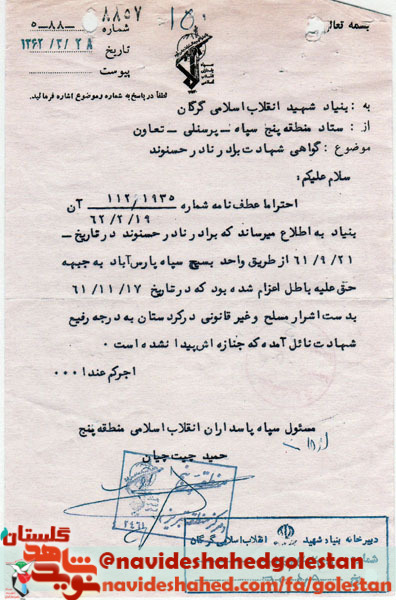 بسمه تعالی
شماره ۵-۸۸- ۸۸۵۷
تاریخ ۱۳۶۲/۳/۲۸
پیوست
لطفا در پاسخ به شماره و موضوع اشاره فرمائید.
به : بنیاد شهید انقلاب اسلامی گرگان
از : ستاد منطقه پنج سپاه - پرسنلی - تعاون
موضوع : گواهی شهادت برادر نادر حسنوند
سلام علیکم :
احتراما عطف نامه شماره ۱۱۲/۱۹۳۵ آن
۶۲/۲/۱۹
بنیاد به اطلاع میرساند که برادر نادر حسنوند در تاریخ -
۶۱/۹/۲۱ از طریق واحد بسیج سپاه پارس‌آباد به جبهه
حق علیه باطل اعزام شده بود که در تاریخ ۶۱/۱۱/۱۷
بدست اشرار مسلح و غیر قانونی در کردستان به درجه رفیع
شهادت نائل آمده که جنازه اش پیدا نشده است ۰
اجرکم عندا ۰۰۰
مسئول سپاه پاسداران انقلاب اسلامی منطقه پنج
حمید چیت‌چیان
دبیرخانه بنیاد شهید انقلاب اسلامی گرگان
گلستان
نوید شاهد
@navideshahedgolestan
navideshahed.com/fa/golestan